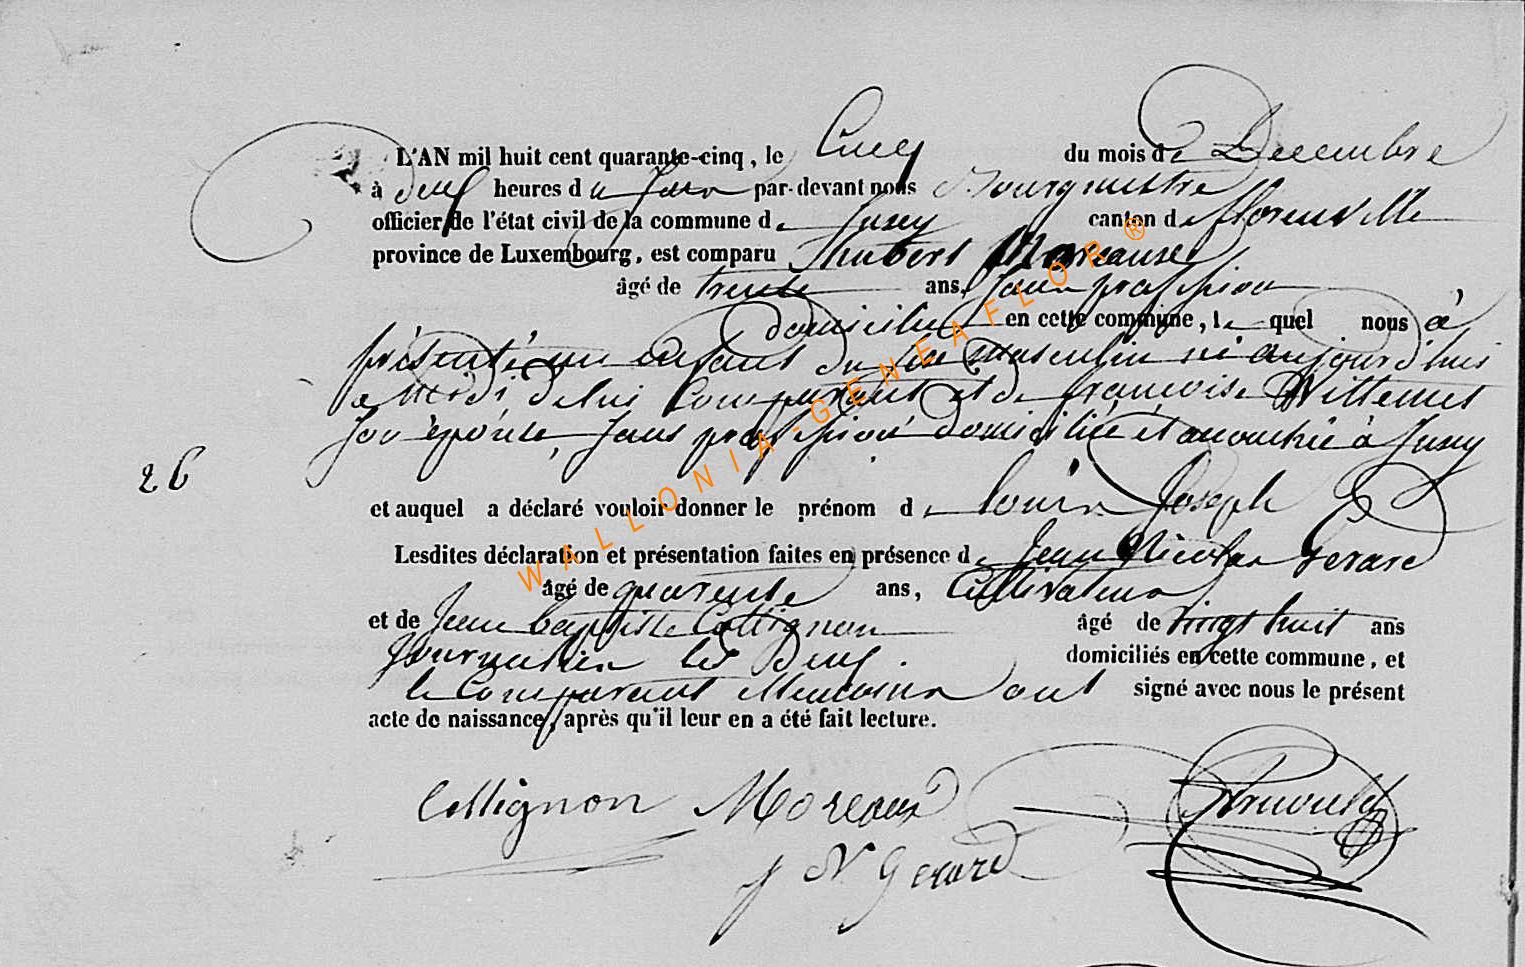 L'AN mil huit cent quarante-cinq, le Cinq du mois de Decembre
à deux heures du soir par-devant nous Bourgmestre
officier de l'état civil de la commune de Jusey canton de florenville
province de Luxembourg, est comparu hubert Moreaux
âgé de trente ans, sans profession
domicilié en cette commune, lequel nous à
présenté un enfant du sexe masculin né aujourd'hui
a Midi de lui Comparant et de françoise Willemet
son épouse, sans profession domiciliée et accouchée à Jusey
26
et auquel a déclaré vouloir donner le prénom de louis Joseph
Lesdites déclaration et présentation faites en présence de Jean Nicolas Gerard
âgé de quarente ans, Cultivateur
et de Jean baptiste Collignon âgé de vingt huit ans
Journalier les deux domiciliés en cette commune, et
le Comparant témoins ont signé avec nous le présent
acte de naissance, après qu'il leur en a été fait lecture.
Collignon Moreaux
J N Gerard
WALLONIA-GENEAFLOR ®